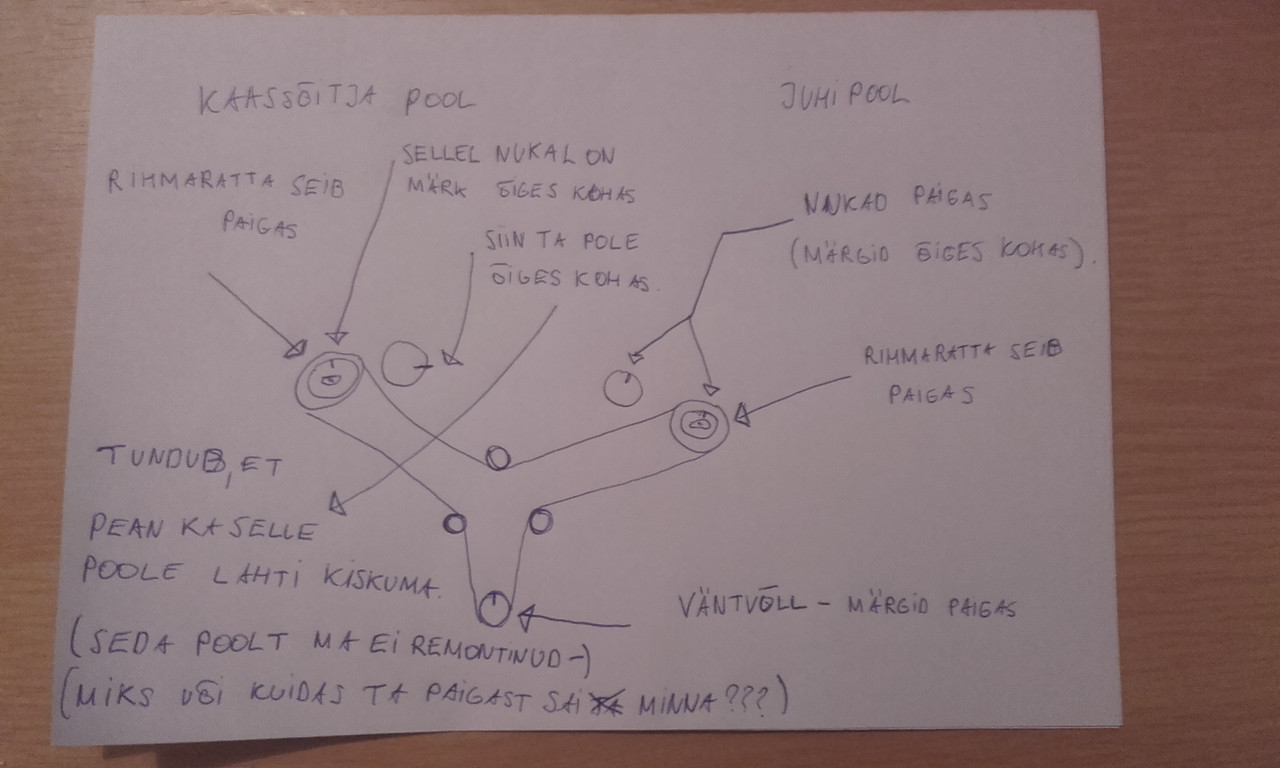 KAASSÕITJA POOL
JUHI POOL
SELLEL NUKAL ON
MÄRK ÕIGES KOHAS
RIHMARATTA SEIB
PAIGAS
SIIN TA POLE
ÕIGES KOHAS.
NUKAD PAIGAS
(MÄRGID ÕIGES KOHAS).
RIHMARATTA SEIB
PAIGAS
TUNDUB, ET
PEAN KA SELLE
POOLE LAHTI KISKUMA.
VÄNTVÕLL - MÄRGID PAIGAS
(SEDA POOLT MA EI REMONTINUD-)
(MIKS VÕI KUIDAS TA PAIGAST SAI MINNA???)